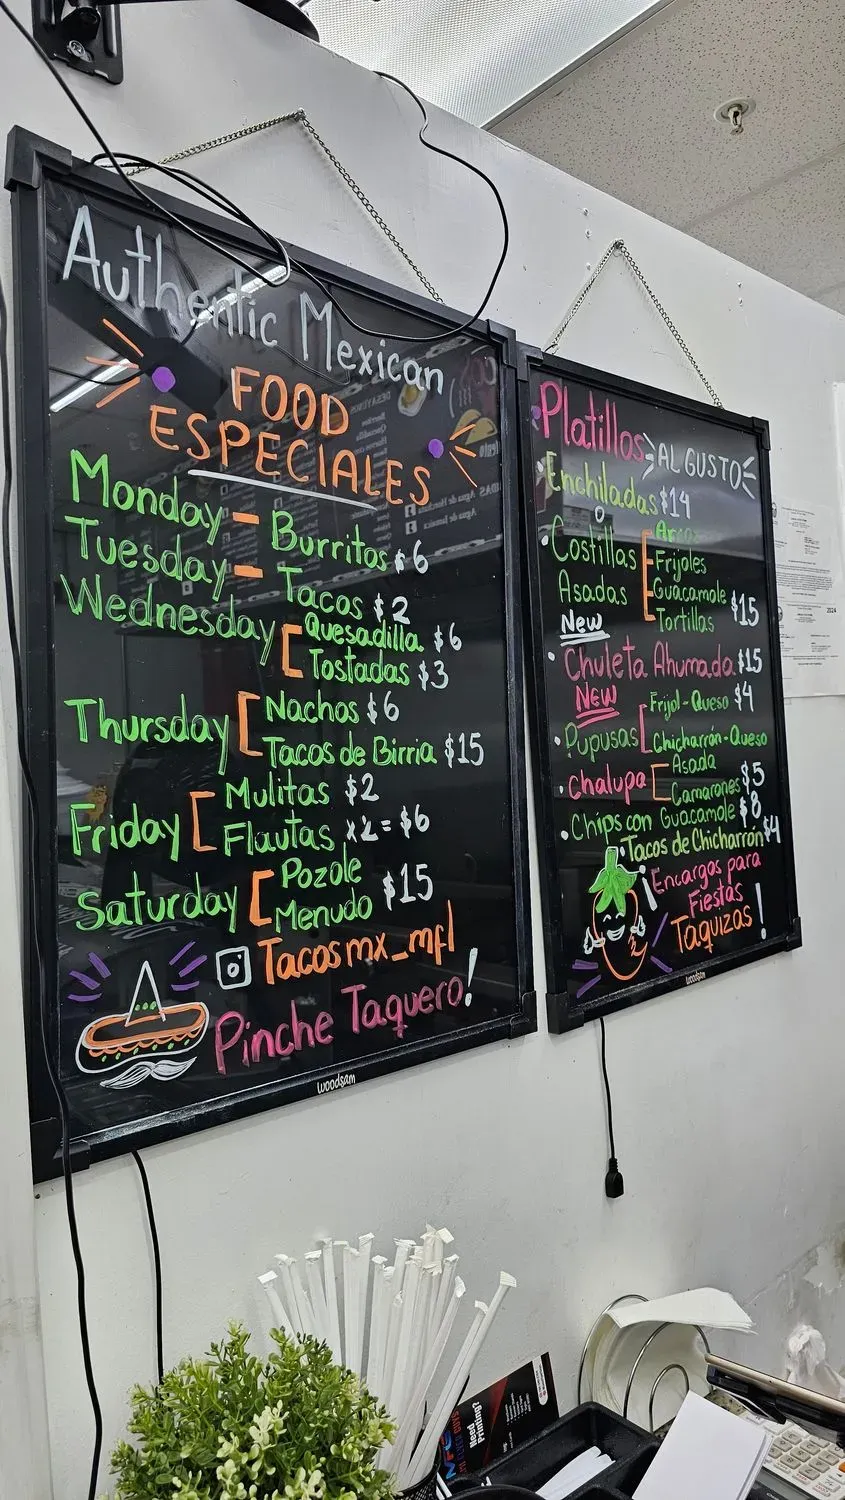 Authentic Mexican
FOOD
ESPECIALES
Monday - Burritos $6
Tuesday - Tacos $2
Wednesday [ Quesadilla $6
Tostadas $3
Thursday [ Nachos $6
Tacos de Birria $15
Friday [ Mulitas $2
Flautas x2 = $6
Saturday [ Pozole
Menudo $15
Tacosmx_mfl
Pinche Taquero!
woodsam
Platillos AL GUSTO
• Enchiladas $14
• Costillas Asadas [
Frijoles
Guacamole
Tortillas $15
New
• Chuleta Ahumada $15
New
• Pupusas [ Frijol-Queso $4
Chicharrón-Queso
• Chalupa [ Asada
Camarones $5
• Chips con Guacamole $8
• Tacos de Chicharrón $4
¡Encargos para
Fiestas
Taquizas!
woodsam
2024
Need
Printing?